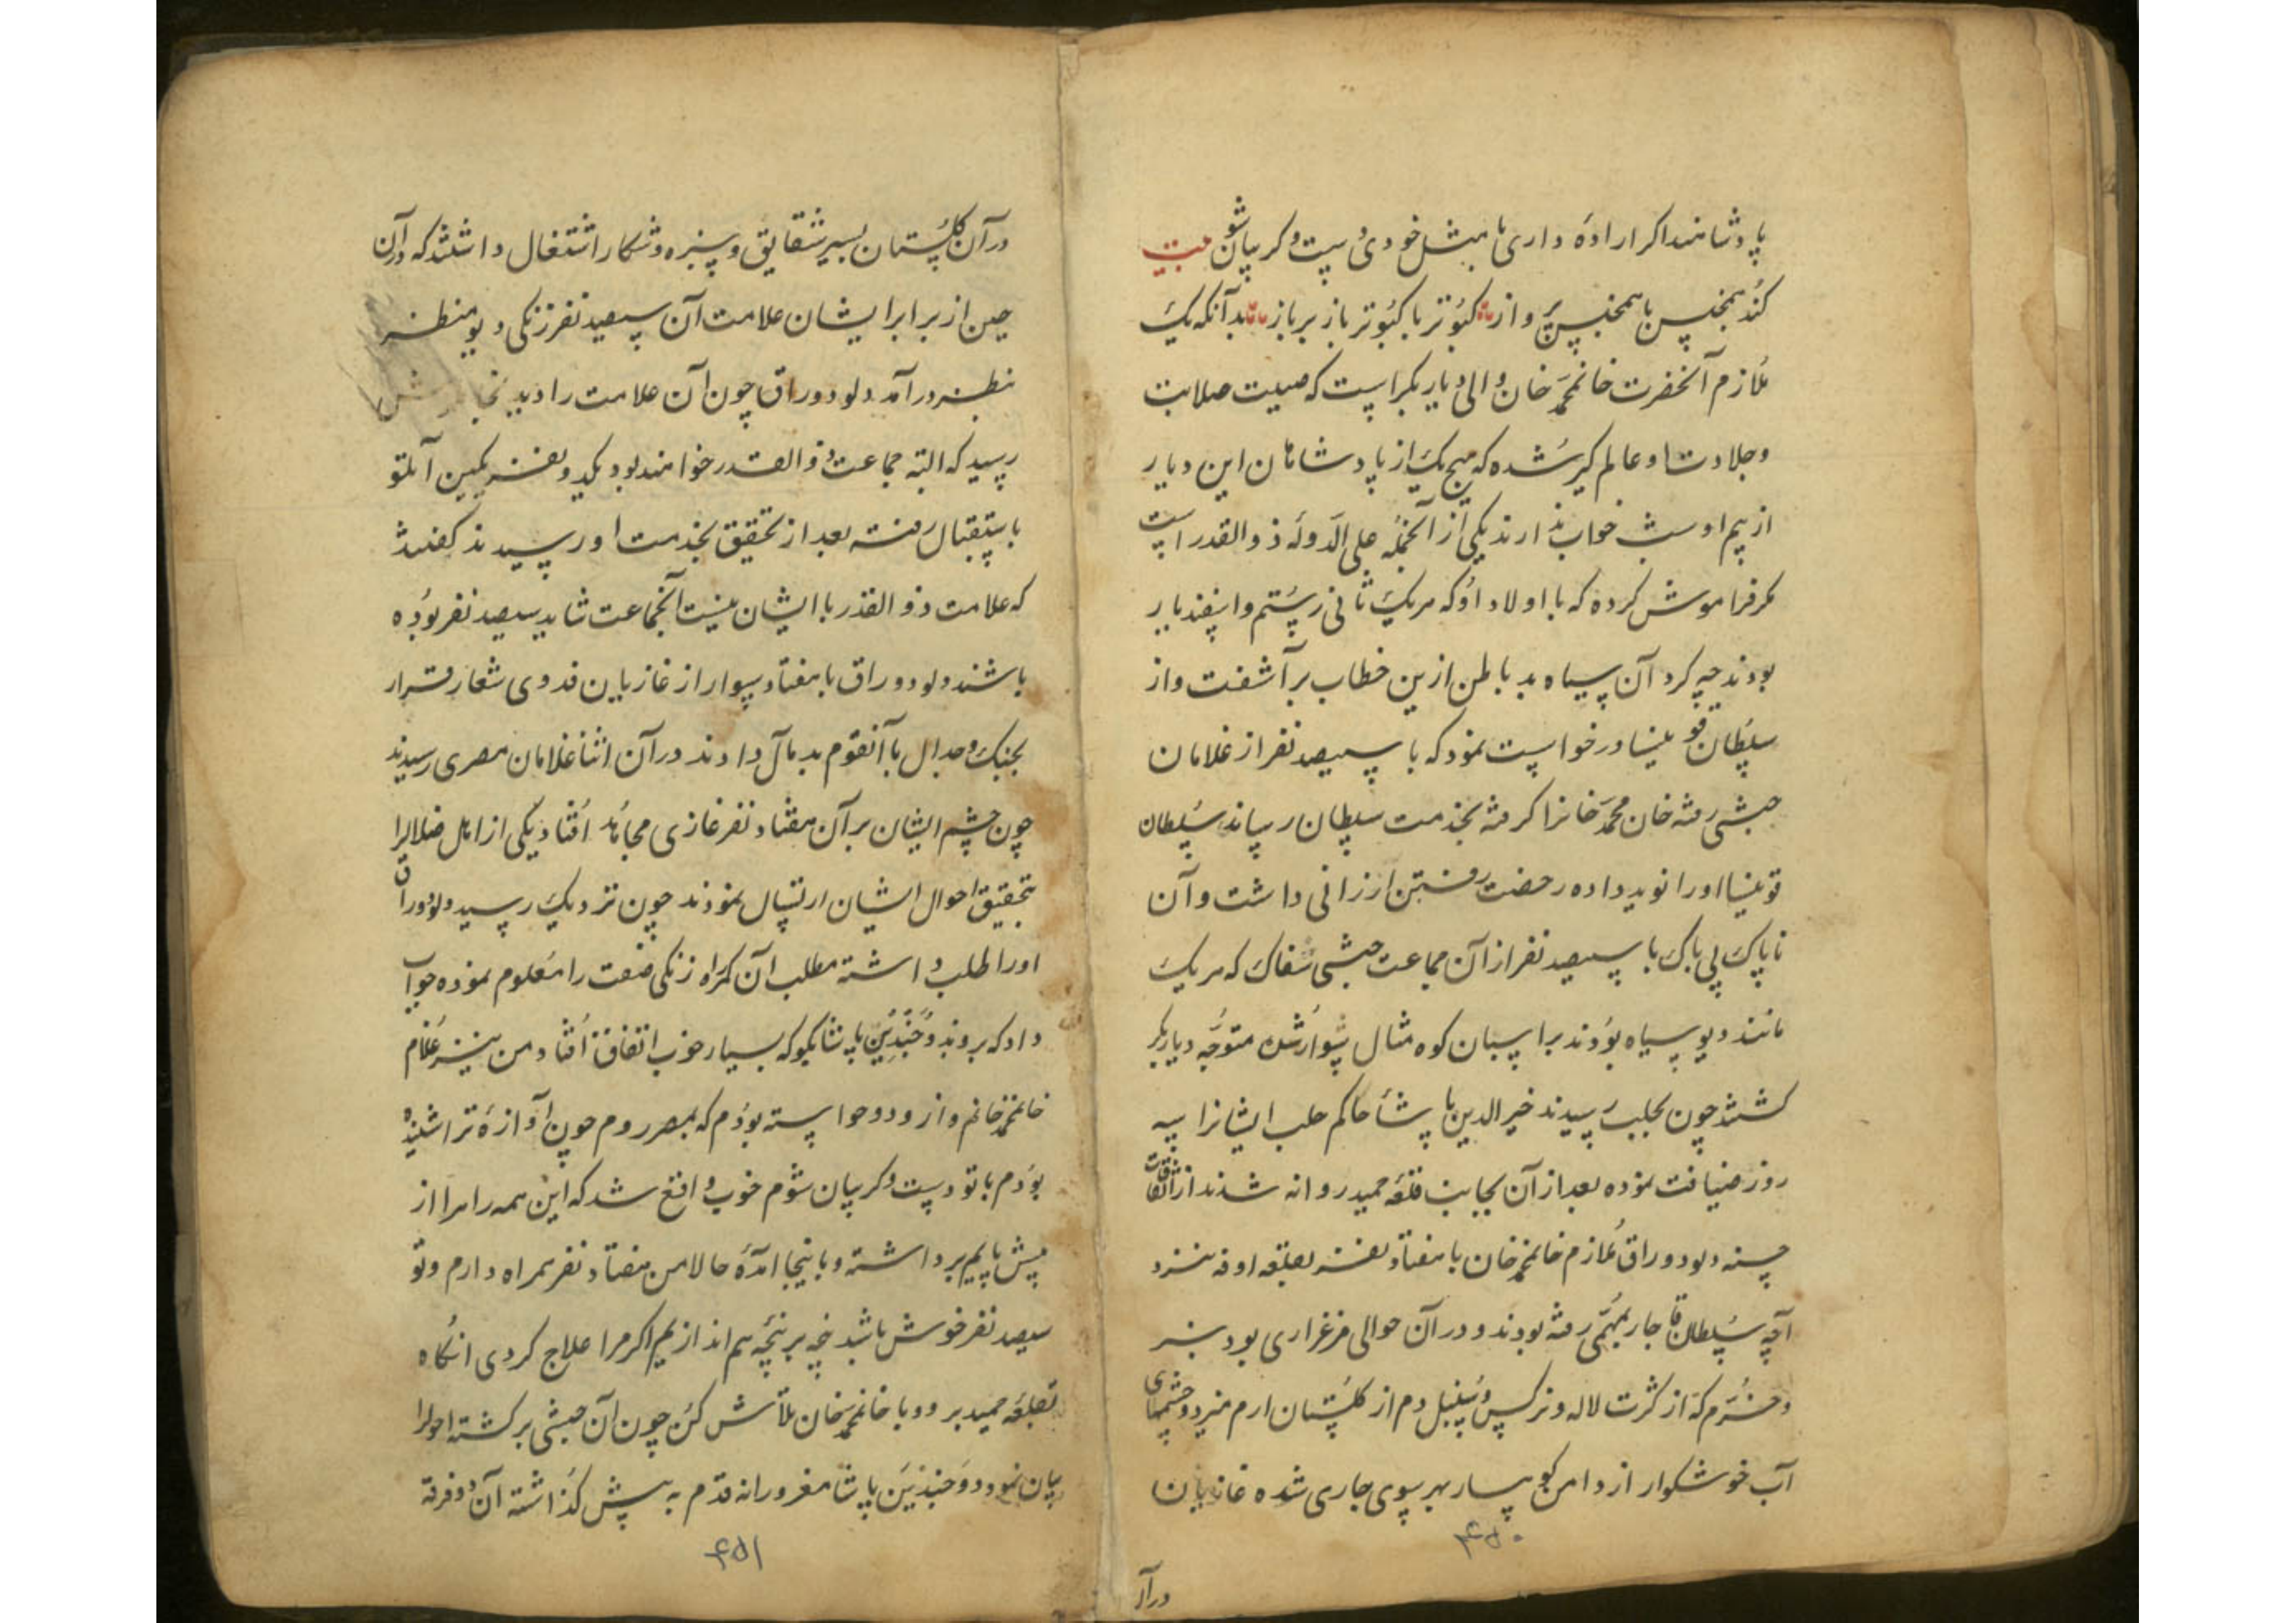 پادشاهند اکر ارادهٔ داری با مثل خودی دست و کریبان شو بیت
کند همجنس با همجنس پرواز کبوتر با کبوتر باز بر باز بدآنکه یک
ملازم آنحضرت خانمحمد خان والی دیاربکر است که صیت صلابت
و جلادت او عالم کیر شده که هیچ یک از پادشاهان این دیار
از بیم او شب خواب ندارند یکی از آنجمله علی الدوله ذوالقدر است
مکر فراموش کرده که با اولاد او که هر یک ثانی رستم و اسفندیار
بودند چه کرد آن سیاه بد باطن ازین خطاب برآشفت و از
سلطان قو ینسا درخواست نمود که با سیصد نفر از غلامان
حبشی رفته خان محمد خانرا کرفته بخدمت سلطان رساند سلطان
قو ینسا اورا نوید داده رخصت رفتن ارزانی داشت و آن
ناپاک بی باک با سیصد نفر از آن جماعت حبشی سفاک که هر یک
مانند دیو سیاه بودند بر اسبان کوه مثال سوار شده متوجه دیاربکر
کشتند چون بحلب رسیدند خیرالدین پاشا حاکم حلب ایشانرا سه
روز ضیافت نموده بعد از آن بجانب قلعه حمید روانه شدند از اتفاقات
حسنه دلو دوراق ملازم خانمحمد خان با هفتاد نفر بقلعه اوفه نزد
آچه سلطان قاجار بمهمی رفته بودند و در آن حوالی مرغزاری بود سبز
و خرم که از کثرت لاله و نرکس و سنبل دم از کلستان ارم میزد و چشمهای
آب خوشکوار از دامن کوهسار بهر سوی جاری شده غازیان
۴۵۰
درآن
در آن کلستان بسیر شقایق و سبزه و شکار اشتغال داشتند که در آن
حین از برابر ایشان علامت آن سیصد نفر زنکی دیو منظر
بنظر درآمد دلو دوراق چون آن علامت را دید
رسید که البته جماعت ذوالقدر خواهند بود یکدو نفر بکمین آن
باستقبال رفته بعد از تحقیق بخدمت او رسیدند کفتند
که علامت ذوالقدر با ایشان نیست آنجماعت شاید سیصد نفر بوده
باشند دلو دوراق با هفتاد سوار از غازیان فدوی شعار قرار
بجنک و جدال با آنقوم بد مآل دادند در آن اثنا غلامان مصری رسیدند
چون چشم ایشان بر آن هفتاد نفر غازی مجاهد افتاد یکی از اهل ضلالرا
بتحقیق احوال ایشان ارسال نمودند چون نزدیک رسید دلو دوراق
اورا طلب داشته مطلب آن کمراه زنکی صفت را معلوم نموده جواب
داد که برو بد و خبدین پاشا بکو که بسیار خوب اتفاق افتاد من نیز غلام
خانمحمد خانم و از و دو خواسته بودم که بمصر روم چون آوازهٔ ترا شنیده
بودم با تو دست و کریبان شوم خوب واقع شد که این همه راه را از
پیش پایم برداشته و باینجا آمدهٔ حالا من هفتاد نفر همراه دارم و تو
سیصد نفر خوش باشد پنجه بر پنجه هم اندازیم اکر مرا علاج کردی آنکاه
بقلعه حمید برو و با خانمحمد خان تلاش کن چون آن حبشی برکشته احوالرا
بیان نمود و خبدین پاشا مغرورانه قدم به پیش کذاشته آن دو فرقه
۴۵۱